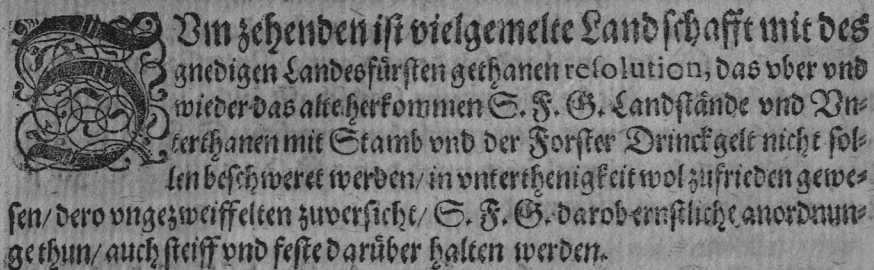 ZUm zehenden ist vielgemelte Landschafft mit des
gnedigen Landesfürsten gethanen resolution, das vber vnd
wieder das alte herkommen S. F. G. Landstände vnd Vn⸗
terthanen mit Stamb vnd der Forster Drinckgelt nicht sol⸗
len beschweret werden/ in vnterthenigkeit wol zufrieden gewe⸗
sen/ dero vngezweiffelten zuversicht/ S. F. G. darob ernstliche anordnun⸗
ge thun/ auch steiff vnd feste darüber halten werden.